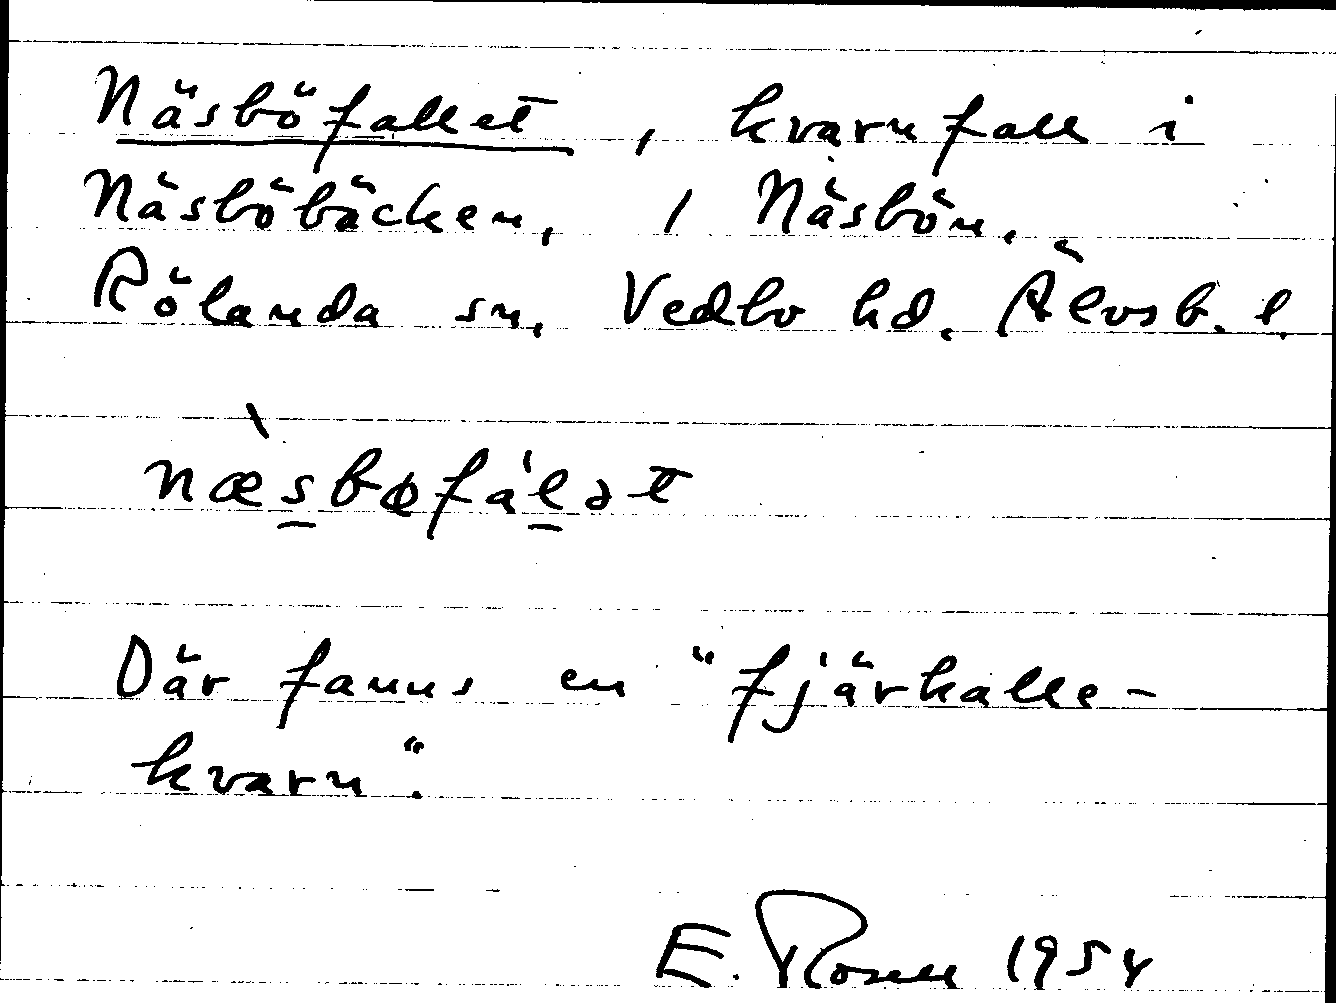 Näsböfallet, kvarnfall i
Näsböbäcken, / Näsbön.
Rölanda sn, Vedbo hd. Älvsb. l.
næ̀sbøfal̍ət
Där fanns en "fjärkalle-
kvarn".
E. Rosell 1954